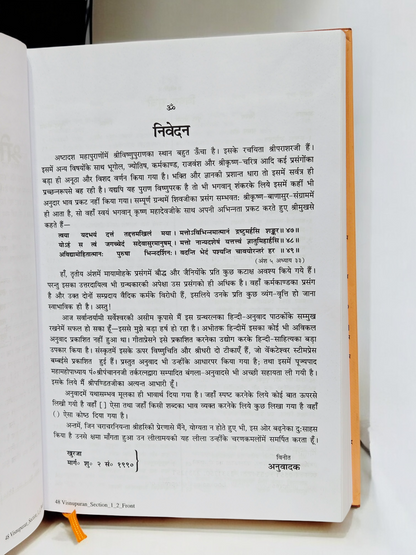 ॐ
निवेदन
अष्टादश महापुराणोंमें श्रीविष्णुपुराणका स्थान बहुत ऊँचा है। इसके रचयिता श्रीपराशरजी हैं।
इसमें अन्य विषयोंके साथ भूगोल, ज्योतिष, कर्मकाण्ड, राजवंश और श्रीकृष्ण-चरित्र आदि कई प्रसंगोंका
बड़ा ही अनूठा और विशद वर्णन किया गया है। भक्ति और ज्ञानकी प्रशान्त धारा तो इसमें सर्वत्र ही
प्रच्छन्नरूपसे बह रही है। यद्यपि यह पुराण विष्णुपरक है तो भी भगवान् शंकरके लिये इसमें कहीं भी
अनुदार भाव प्रकट नहीं किया गया। सम्पूर्ण ग्रन्थमें शिवजीका प्रसंग सम्भवतः श्रीकृष्ण-बाणासुर-संग्राममें
ही आता है, सो वहाँ स्वयं भगवान् कृष्ण महादेवजीके साथ अपनी अभिन्नता प्रकट करते हुए श्रीमुखसे
कहते हैं—
त्वया यदभयं दत्तं तद्दत्तमखिलं मया। मत्तोऽविभिन्नमात्मानं द्रष्टुमर्हसि शङ्कर॥४७॥
योऽहं स त्वं जगच्चेदं सदेवासुरमानुषम्। मत्तो नान्यदशेषं यत्तत्त्वं ज्ञातुमिहार्हसि॥४८॥
अविद्यामोहितात्मानः पुरुषा भिन्नदर्शिनः। वदन्ति भेदं पश्यन्ति चावयोरन्तरं हर॥४९॥
(अंश ५ अध्याय ३३)
हाँ, तृतीय अंशमें मायामोहके प्रसंगमें बौद्ध और जैनियोंके प्रति कुछ कटाक्ष अवश्य किये गये हैं।
परन्तु इसका उत्तरदायित्व भी ग्रन्थकारकी अपेक्षा उस प्रसंगको ही अधिक है। वहाँ कर्मकाण्डका प्रसंग
है और उक्त दोनों सम्प्रदाय वैदिक कर्मके विरोधी हैं, इसलिये उनके प्रति कुछ व्यंग-वृत्ति हो जाना
स्वाभाविक ही है। अस्तु!
आज सर्वान्तर्यामी सर्वेश्वरकी असीम कृपासे मैं इस ग्रन्थरत्नका हिन्दी-अनुवाद पाठकोंके सम्मुख
रखनेमें सफल हो सका हूँ—इससे मुझे बड़ा हर्ष हो रहा है। अभीतक हिन्दीमें इसका कोई भी अविकल
अनुवाद प्रकाशित नहीं हुआ था। गीताप्रेसने इसे प्रकाशित करनेका उद्योग करके हिन्दी-साहित्यका बड़ा
उपकार किया है। संस्कृतमें इसके ऊपर विष्णुचिति और श्रीधरी दो टीकाएँ हैं, जो वेंकटेश्वर स्टीमप्रेस
बम्बईसे प्रकाशित हुई हैं। प्रस्तुत अनुवाद भी उन्हींके आधारपर किया गया है; तथा इसमें पूज्यपाद
महामहोपाध्याय पं०श्रीपंचाननजी तर्करत्नद्वारा सम्पादित बंगला-अनुवादसे भी अच्छी सहायता ली गयी है।
इसके लिये मैं श्रीपण्डितजीका अत्यन्त आभारी हूँ।
अनुवादमें यथासम्भव मूलका ही भावार्थ दिया गया है। जहाँ स्पष्ट करनेके लिये कोई बात ऊपरसे
लिखी गयी है वहाँ [ ] ऐसा तथा जहाँ किसी शब्दका भाव व्यक्त करनेके लिये कुछ लिखा गया है वहाँ
( ) ऐसा कोष्ठ दिया गया है।
अन्तमें, जिन चराचरनियन्ता श्रीहरिकी प्रेरणासे मैंने, योग्यता न होते हुए भी, इस ओर बढ़नेका दुःसाहस
किया है उनसे क्षमा माँगता हुआ उन लीलामयकी यह लीला उन्हींके चरणकमलोंमें समर्पित करता हूँ।
खुरजा
मार्ग० शु० २ सं० १९९०
विनीत
अनुवादक
48 Visnupuran_Section_1_2_Front
48 Visnupuran_Section_